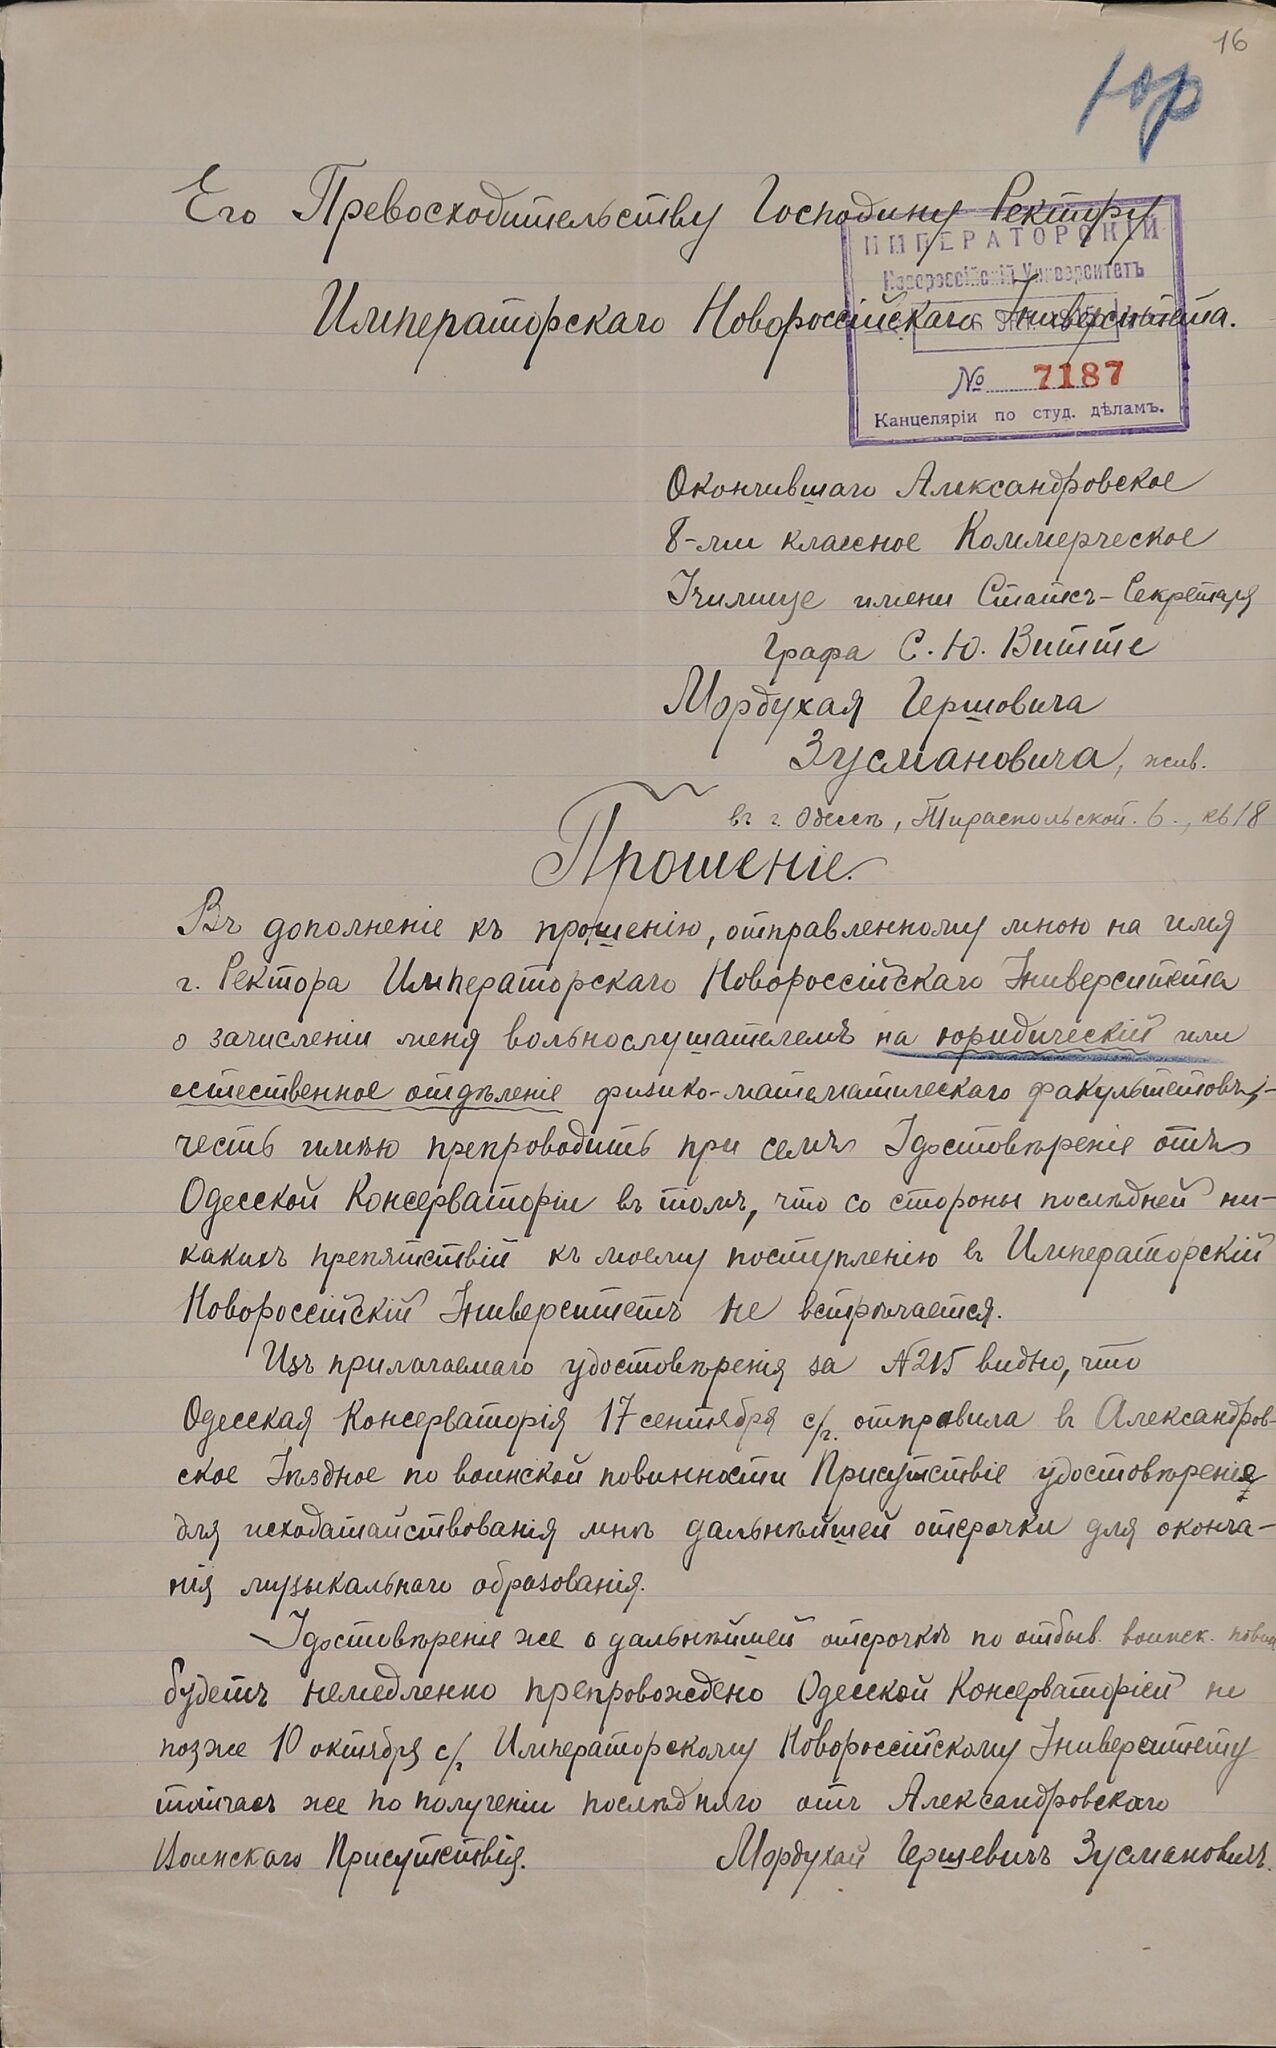 16
Юр
Его Превосходительству Господину Ректору
ИМПЕРАТОРСКІЙ
Новороссійскій Университетъ
Императорскаго Новороссійскаго Университета.
№ 7187
Канцелярія по студ. дѣламъ.
Окончившаго Александровское
8-ми классное Коммерческое
Училище имени Статсъ-Секретаря
Графа С. Ю. Витте
Мордухая Гершовича
Зусмановича, жив.
въ г. Одессѣ, Тираспольской. 6., кв 18
Прошеніе.
Въ дополненіе къ прошенію, отправленному мною на имя
г. Ректора Императорскаго Новороссійскаго Университета
о зачисленіи меня вольнослушателемъ на юридическій или
естественное отдѣленіе физико-математическаго факультетовъ,-
честь имѣю препроводить при семъ Удостовѣреніе отъ
Одесской Консерваторіи въ томъ, что со стороны послѣдней ни-
какихъ препятствій къ моему поступленію въ Императорскій
Новороссійскій Университетъ не встрѣчается.
Изъ прилагаемаго удостовѣренія за №215 видно, что
Одесская Консерваторія 17 сентября с/г. отправила въ Александров-
ское Уѣздное по воинской повинности Присутствіе удостовѣреніе
для исходатайствованія мнѣ дальнѣйшей отсрочки для оконча-
нія музыкальнаго образованія.
Удостовѣреніе же о дальнѣйшей отсрочкѣ по отбыв. воинск. повин
будетъ немедленно препровождено Одесской Консерваторіей не
позже 10 октября с/г. Императорскому Новороссійскому Университету
тотчасъ же по полученіи послѣдняго отъ Александровскаго
Воинскаго Присутствія. Мордухай Гершевичъ Зусмановичъ.